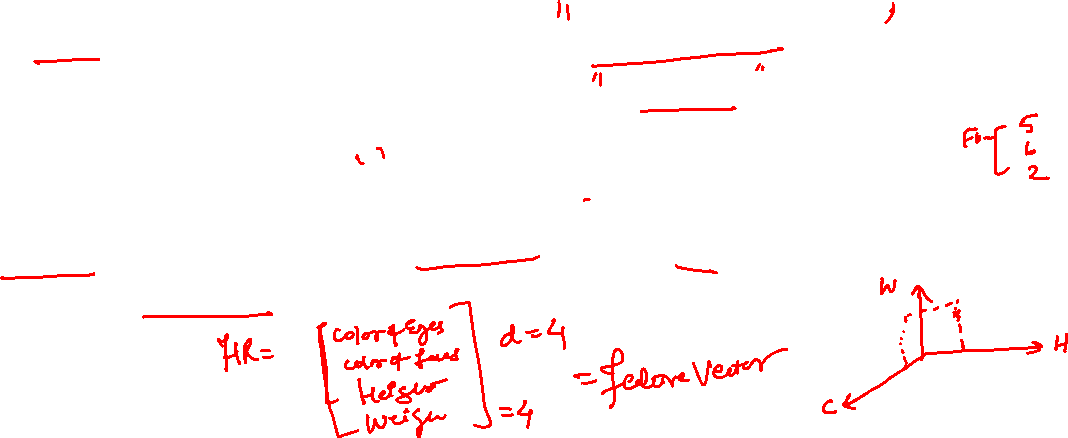 5
6
2
W
H
C
HR=
Color of Eyes
color of faces
Height
Weight
d=4
=4
= feature Vector